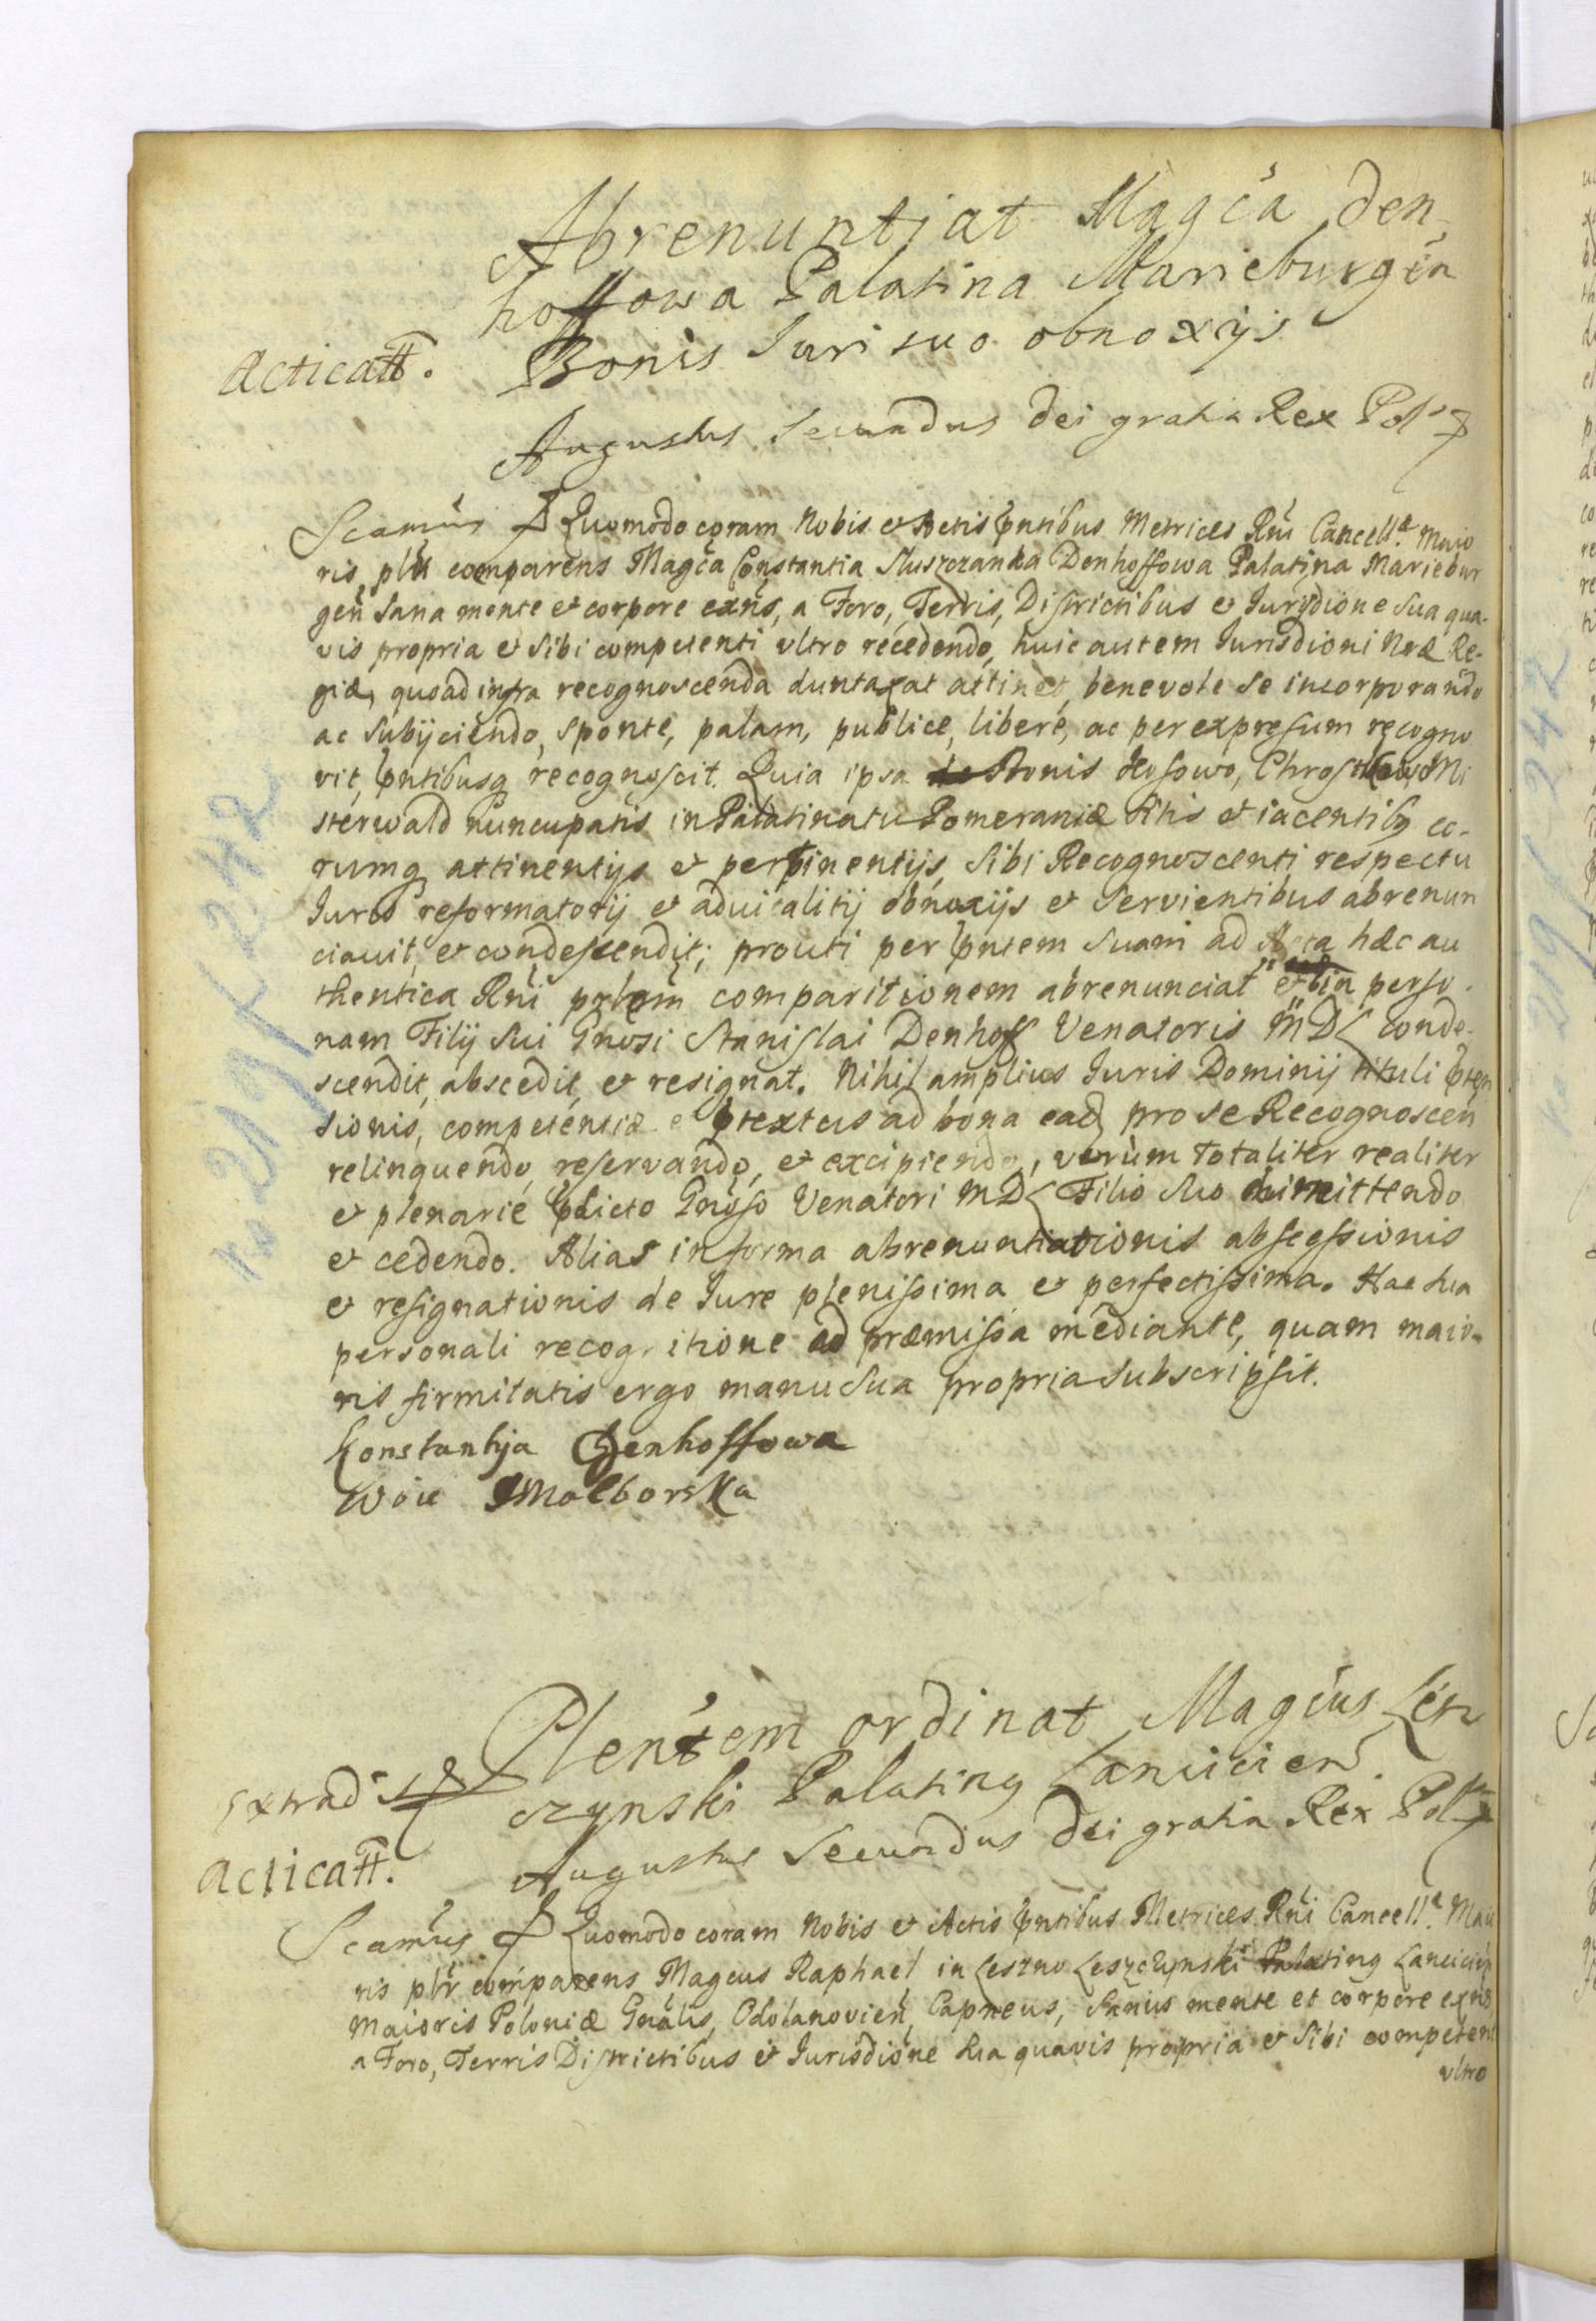 Abrenuntiat Magca Den
hoffowa Palatina Marieburgen
Bonis Juri suo obnoxijs
Acticatt.
Augustus Secundus Dei gratia Rex Pol
Scamus Quomodo coram Nobis et Actis pntibus Metrices Rni Cancell. Maio
ris plr comparens Magca Constantia Słuszczanka Denhoffowa Palatina Mariebur
gen sana mente et corpore exns, a Foro, Terris, Districtibus et Jurisdione sua qua-
vis propria et sibi competenti vltro recedendo, huic autem Jurisdioni Nræ Re-
giæ, quoad infra recognoscenda duntaxat attinet, benevole se incorporando
ac subijciendo, sponte, palam, publice, libere, ac per expressum recogno
vit, pntibusq recognoscit. Quia ipsa Bonis Mi
sterwald nuncupatis in Palatinatu Pomeraniæ sitis et iacentibq eo-
rumq attinentijs et pertinentijs, sibi Recognoscenti respectu
Juris reformatorij et aduitalitij obnoxijs et servientibus abrenun
ciavit, et condescendit; prouti per pntem suam ad Acta hæc au
thentica Rni prlem comparitionem abrenunciat et in perso
nam Filij sui Gnosi Stanislai Denhoff Venatoris M D L conde-
scendit, abscedit, et resignat. Nihil amplius Juris Dominij tituli pten
sionis, competentiæ et ptextus ad bona ead pro se Recognoscen
relinquendo, reservando, et excipiendo, verùm totaliter realiter
et plenarie pdicto Gnoso Venatori M D L Filio suo dimittendo
et cedendo. Alias in forma abrenuntiationis abscessionis
et resignationis de Jure plenissima et perfectissima. Hac sua
personali recognitione ad præmissa mediante, quam maio-
ris firmitatis ergo manu sua propria subscripsit.
Konstantyja Denhoffowa
Woie Malborska
Plentem ordinat Magcus Lesz
czynski Palatinq Lancicien
Extrad
Acticatt.
Augustus Secundus Dei gratia Rex Pol
Scamus Quomodo coram Nobis et Actis pntibus Metrices Rni Cancell. Maio
ris plr comparens Magcus Raphael in Leszno Leszczynski Palatinq Lancicien
Maioris Poloniæ Gnalis, Odolanovien Capneus, Sanus mente et corpore exns
a Foro, Terris Districtibus et Jurisdione sua quavis propria et sibi competen
vltro